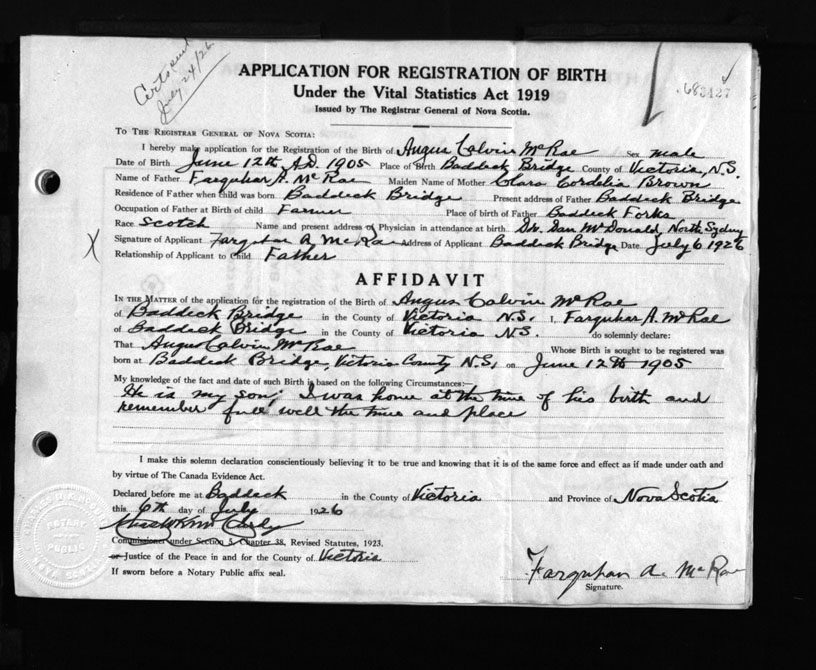 Certs sent
July 24/26
683127
APPLICATION FOR REGISTRATION OF BIRTH
Under the Vital Statistics Act 1919
Issued by The Registrar General of Nova Scotia.
TO THE REGISTRAR GENERAL OF NOVA SCOTIA:
I hereby make application for the Registration of the Birth of Angus Calvin McRae Sex male
Date of Birth June 12th A.D. 1905 Place of Birth Baddeck Bridge County of Victoria, N.S.
Name of Father Farquhar A. McRae Maiden Name of Mother Clara Cordelia Brown
Residence of Father when child was born Baddeck Bridge Present address of Father Baddeck Bridge
Occupation of Father at Birth of child Farmer Place of birth of Father Baddeck Forks
Race Scotch Name and present address of Physician in attendance at birth Dr. Dan McDonald, North Sydney
X Signature of Applicant Farquhar A McRae Address of Applicant Baddeck Bridge Date July 6 1926
Relationship of Applicant to Child Father
AFFIDAVIT
IN THE MATTER of the application for the registration of the Birth of Angus Calvin McRae
of Baddeck Bridge in the County of Victoria N.S. I, Farquhar A. McRae
of Baddeck Bridge in the County of Victoria N.S. do solemnly declare:
That Angus Calvin McRae Whose Birth is sought to be registered was
born at Baddeck Bridge, Victoria County N.S, on June 12th 1905
My knowledge of the fact and date of such Birth is based on the following Circumstances:—
He is my son; I was home at the time of his birth and
remember full well the time and place
I make this solemn declaration conscientiously believing it to be true and knowing that it is of the same force and effect as if made under oath and
by virtue of The Canada Evidence Act.
Declared before me at Baddeck in the County of Victoria and Province of Nova Scotia
this 6th day of July 1926
Commissioner under Section 5, Chapter 38, Revised Statutes, 1923.
or Justice of the Peace in and for the County of Victoria
If sworn before a Notary Public affix seal.
Farquhar A. McRae
Signature.
NOTARY
PUBLIC